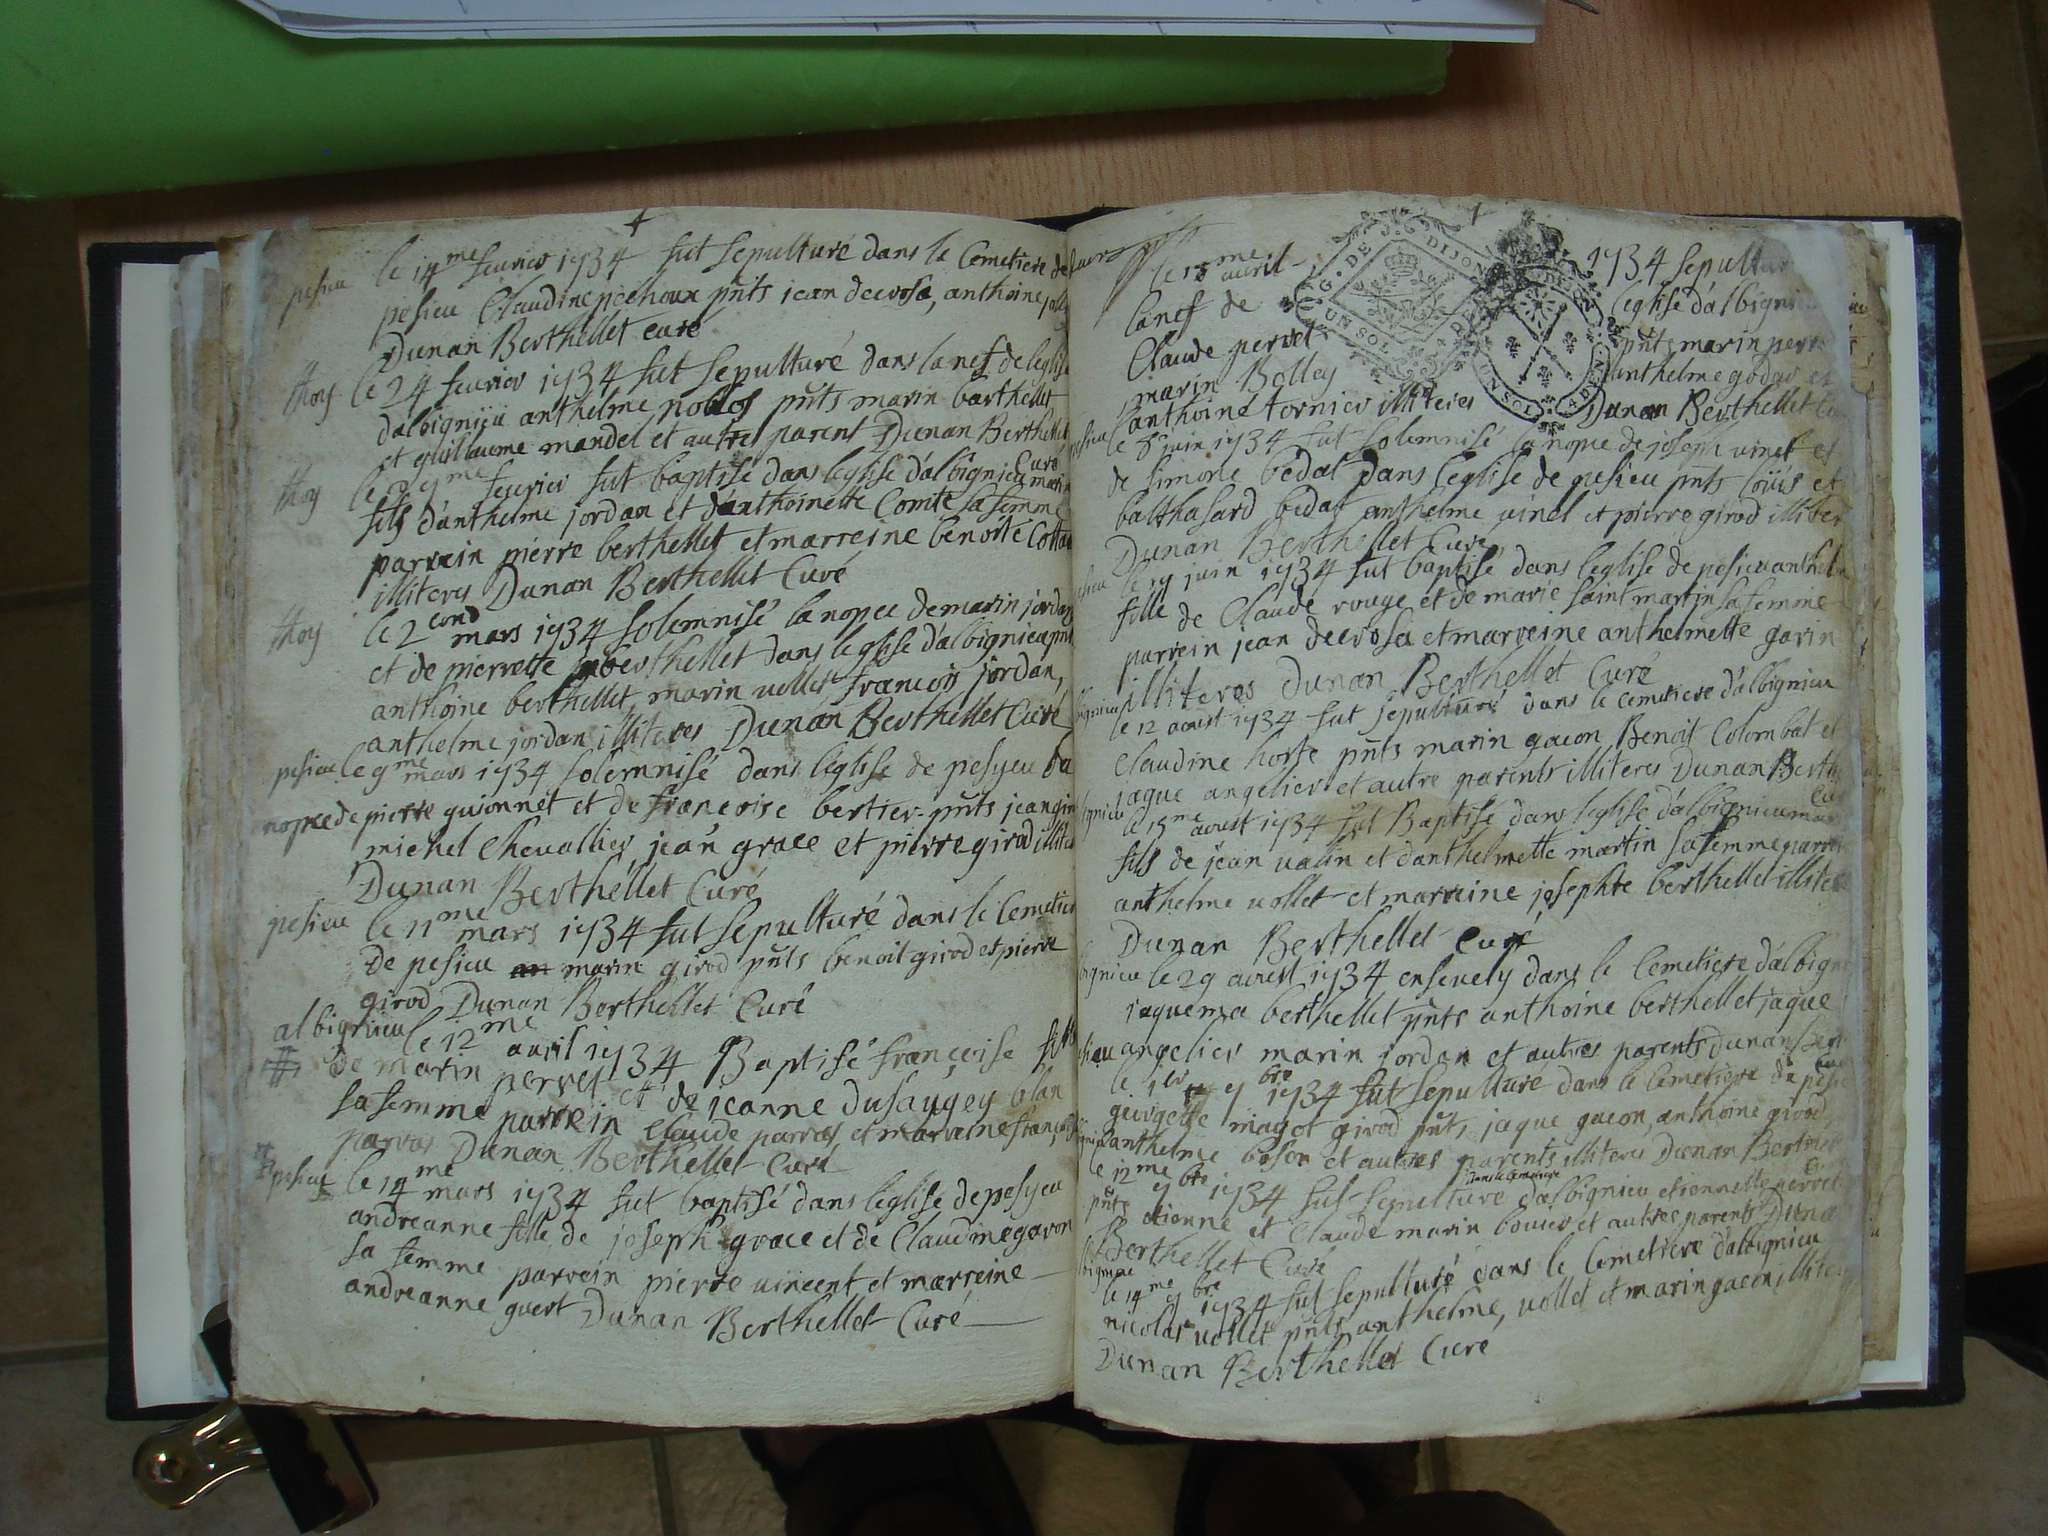 pesieu le 14me feurier 1734 fut sepulturé dans le Cemetiere de
pesieu Claudine pichoux pnts jean decrosa, anthoine
Dunan Berthellet curé
thoy le 24 feurier 1734 fut sepulturé dans la nef de leglise
dalbignieu anthelme pnts marin barthellet
et guillaume mandel et autre parent Dunan Berthellet
Curé
thoy le feurier fut baptisé dans leglise d'albignieu marin
fils d'anthelme jordan et d'anthoinette Comte sa femme
parrein pierre berthellet et marreine benoite
illiteres Dunan Berthellet Curé
thoy le 2cond mars 1734 solemnisé la nopce de marin jordan
et de pierrette berthellet dans leglise d'albignieu pnts
anthoine berthellet, marin vollet francois jordan,
anthelme jordan illiteres Dunan Berthellet Curé
pesieu le 9me mars 1734 solemnisé dans léglise de pesyeu la
nopce de pierre guionnet et de francoise bertier pnts jean
michel Chevallier, jean grace et pierre girod
Dunan Berthellet Curé
pesieu le 11me mars 1734 fut sepulturé dans le Cemetiere
de pesieu marin girod pnts benoit girod et pierre
girod Dunan Berthellet Curé
albignieu le 12me auril 1734 Baptisé françoise
de marin pervet et de jeanne dusaugey
sa femme parrein Claude et marreine
Dunan Berthellet Curé
pesieu le 14me mars 1734 fut baptisé dans léglise de pesyeu
andreanne fille de joseph grace et de Claudine garon
sa femme parrein pierre vincent et marreine
andreanne guert Dunan Berthellet Curé
le auril 1734 sepulturé
la nef de léglise d'albignieu
Claude pervet pnts marin
marin Bolley anthelme godar et
anthoine tornier illiteres Dunan Berthellet
G. DE DIJON
UN SOL
le juin 1734 fut solemnisé la nopce de joseph vinet et
de simone bedat dans leglise de pesieu pnts loüis et
balthasard bedat anthelme vinet et pierre girod
Dunan Berthellet Curé
le 19 juin 1734 fut baptisé dans leglise de pesieu
fille de Claude rouge et de marie saint martin sa femme
parrein jean decrosa et marreine anthelmette garin
illiteres Dunan Berthellet Curé
le 12 aoust 1734 fut sepulturé dans le cemetiere d'albignieu
Claudine horte pnts marin gacon Benoit Colombat et
jaque angelier et autre parents illiteres Dunan
le 15me aoust 1734 fut Baptisé dans leglise d'albignieu
fils de jean valin et d'anthelmette martin sa femme
anthelme vollet et marreine josephte berthellet
Dunan Berthellet Curé
le 29 aoust 1734 ensevely dans le Cemetiere
jaquema berthellet pnts anthoine berthellet jaque
angelier marin jordan et autres parents Dunan
le 1er 7bre 1734 fut sepulturé dans le Cemetiere de
georgette magot girod pnts, jaque gacon, anthoine girod,
anthelme boson et autres parents illiteres Dunan
dans le cemetiere
le 12me 7bre 1734 fut sepulturé d'albignieu etiennette
pnts etienne et Claude marin bouier et autres parents
Berthellet Curé
le 14me 7bre 1734 fut sepulturé dans le Cemetiere d'albignieu
nicolas vollet pnts anthelme, vollet et marin gacon
Dunan Berthellet Curé